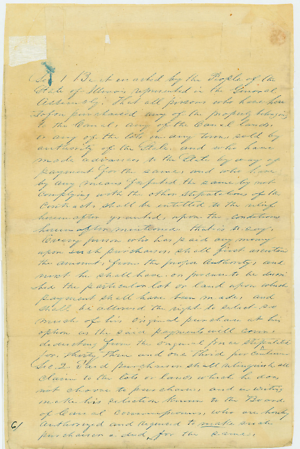 Sec 1 Be it enacted by the People of the
State of Illinois represented in the General
Assembly: That all persons who have here
tofore purchased any of the property belonging
to the Canal, any of the Canal lands
or any of the lots in any town sold by
authority of the State and who have
made advances to the State by way of
payment for the same and who have
by any means forfeited the same by not
complying with the other stipulations of the
Contract shall be entitled to the relief
herein after granted, upon the conditions
hereinafter mentioned that is to say:
Every person who has paid any money
upon such purchases shall first ascertain
the amount from the proper authority, and
shall have on
the particular lot or land upon which
payment shall have been made, and
shall be allowed the right to select so
much of his original purchase at his
option as the said payments will cover
deducting from the original price stipulated
for thirty three and one third per centum
Sec 2. Said purchaser shall relinquish all
claim to the lots or lands which he does
not choose to purchase and in writing
make his selection known to the Board
of Canal Commissioners, who are hereby
authorized and required to make such
purchaser a deed for the same.